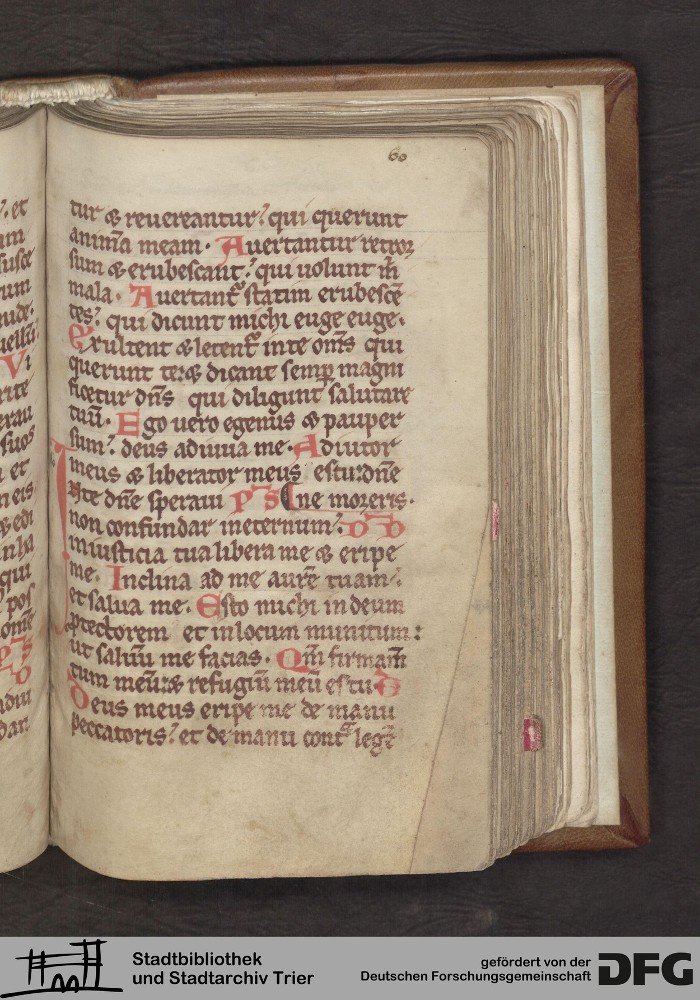 60
tur & reuereantur? qui querunt
animā meam. Auertantur retror
sum & erubescant? qui uolunt m̄
mala. Auertant᷑ statim erubescē
tes? qui dicunt michi euge euge.
Exultent & letent᷑ in te om̄s qui
querunt te: & dicant semp̱ magni
ficetur dn̄s qui diligunt salutare
tuū. Ego uero egenus & pauper
sum? deus adiuua me. Adiutor
meus & liberator meus es tu: dn̄e
Inte dn̄e speraui p̄s ne moreris.
non confundar ineternum?
in iusticia tua libera me & eripe
me. Inclina ad me aurē tuam?
et salua me. Esto michi in deum
ꝓtectorem et in locum munitum:
ut saluū me facias. Qm̄ firmam̄
tum meū: & refugiū meū es tu.
Deus meus eripe me de manu
peccatoris? et de manu contᷓ legē
Stadtbibliothek
und Stadtarchiv Trier
gefördert von der
Deutschen Forschungsgemeinschaft
DFG